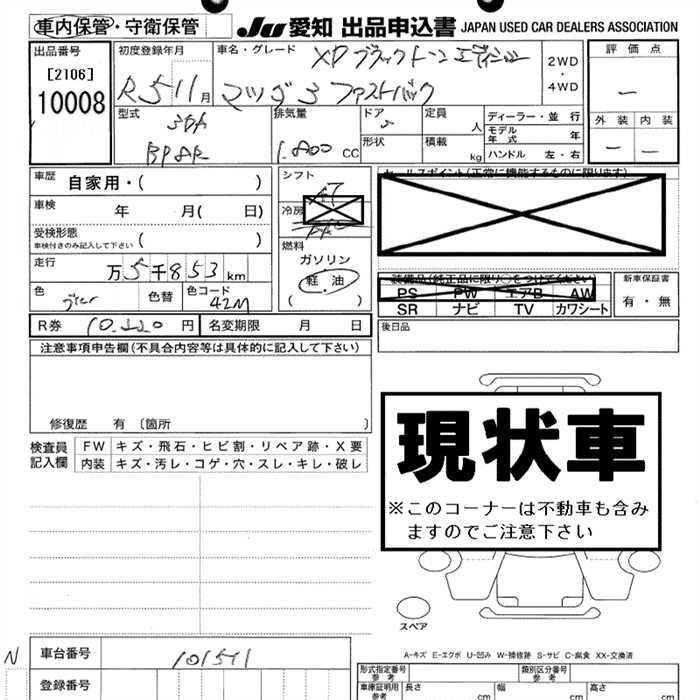 車内保管・守衛保管 JU 愛知 出品申込書 JAPAN USED CAR DEALERS ASSOCIATION
出品番号 初度登録年月 車名・グレード XD ブラックトーンエディション 2WD・4WD 評価点
[2106]
10008 R5 11月 マツダ3 ファストバック ー
型式 排気量 ドア 5 定員 人 ディーラー・並行 外装 内装
3DA モデル年式 年 ー ー
BP8R 1.800 CC 形状 積載 kg ハンドル 左・右
車歴 自家用・( ) シフト セールスポイント(正常に機能するものに限ります)
AT
車検 年 月( 日) 冷房
受検形態 ( )
車検付きのみ記入して下さい 燃料
走行 万5千853km ガソリン 装備品(純正品に限り○をつけてください) 新車保証書
軽油 PS PW エアB AW 有・無
色 色替 色コード 42M ( ) SR ナビ TV カワシート
R券 10.220円 名変期限 月 日 後日品
注意事項申告欄(不具合内容等は具体的に記入して下さい)
修復歴 有〔箇所 〕
現状車
※このコーナーは不動車も含み
ますのでご注意下さい
検査員 FW キズ・飛石・ヒビ割・リペア跡・X要
記入欄 内装 キズ・汚レ・コゲ・穴・スレ・キレ・破レ
スペア
A-キズ E-エクボ U-凹み W-補修跡 S-サビ C-腐食 XX-交換済
N 車台番号 101511
型式指定番号 類別区分番号
登録番号 車庫証明用参考 長さ cm 幅 cm 高さ cm